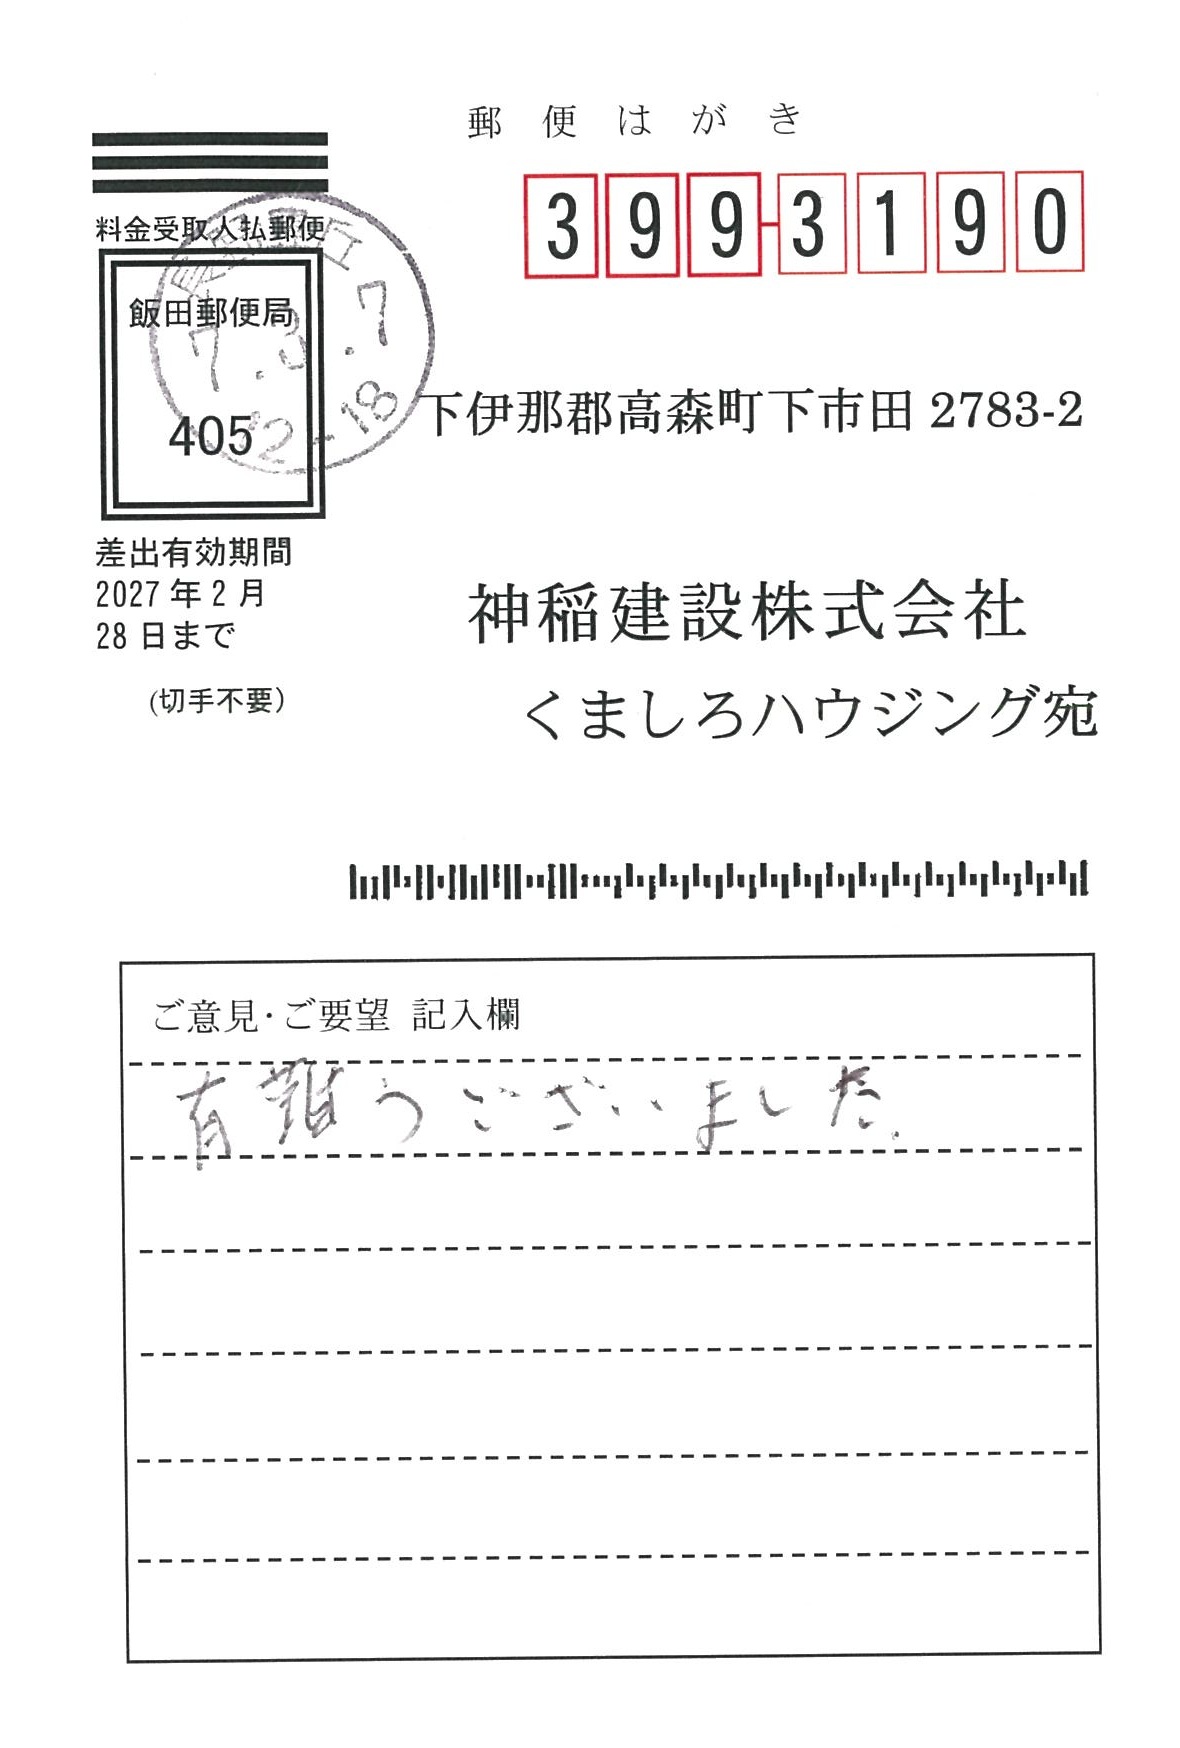 郵便はがき
399-3190
料金受取人払郵便
飯田郵便局
405
7.3.7
12-18
下伊那郡高森町下市田 2783-2
差出有効期間
2027 年 2 月
28 日まで
(切手不要)
神稲建設株式会社
くましろハウジング宛
ご意見・ご要望 記入欄
有難うございました.